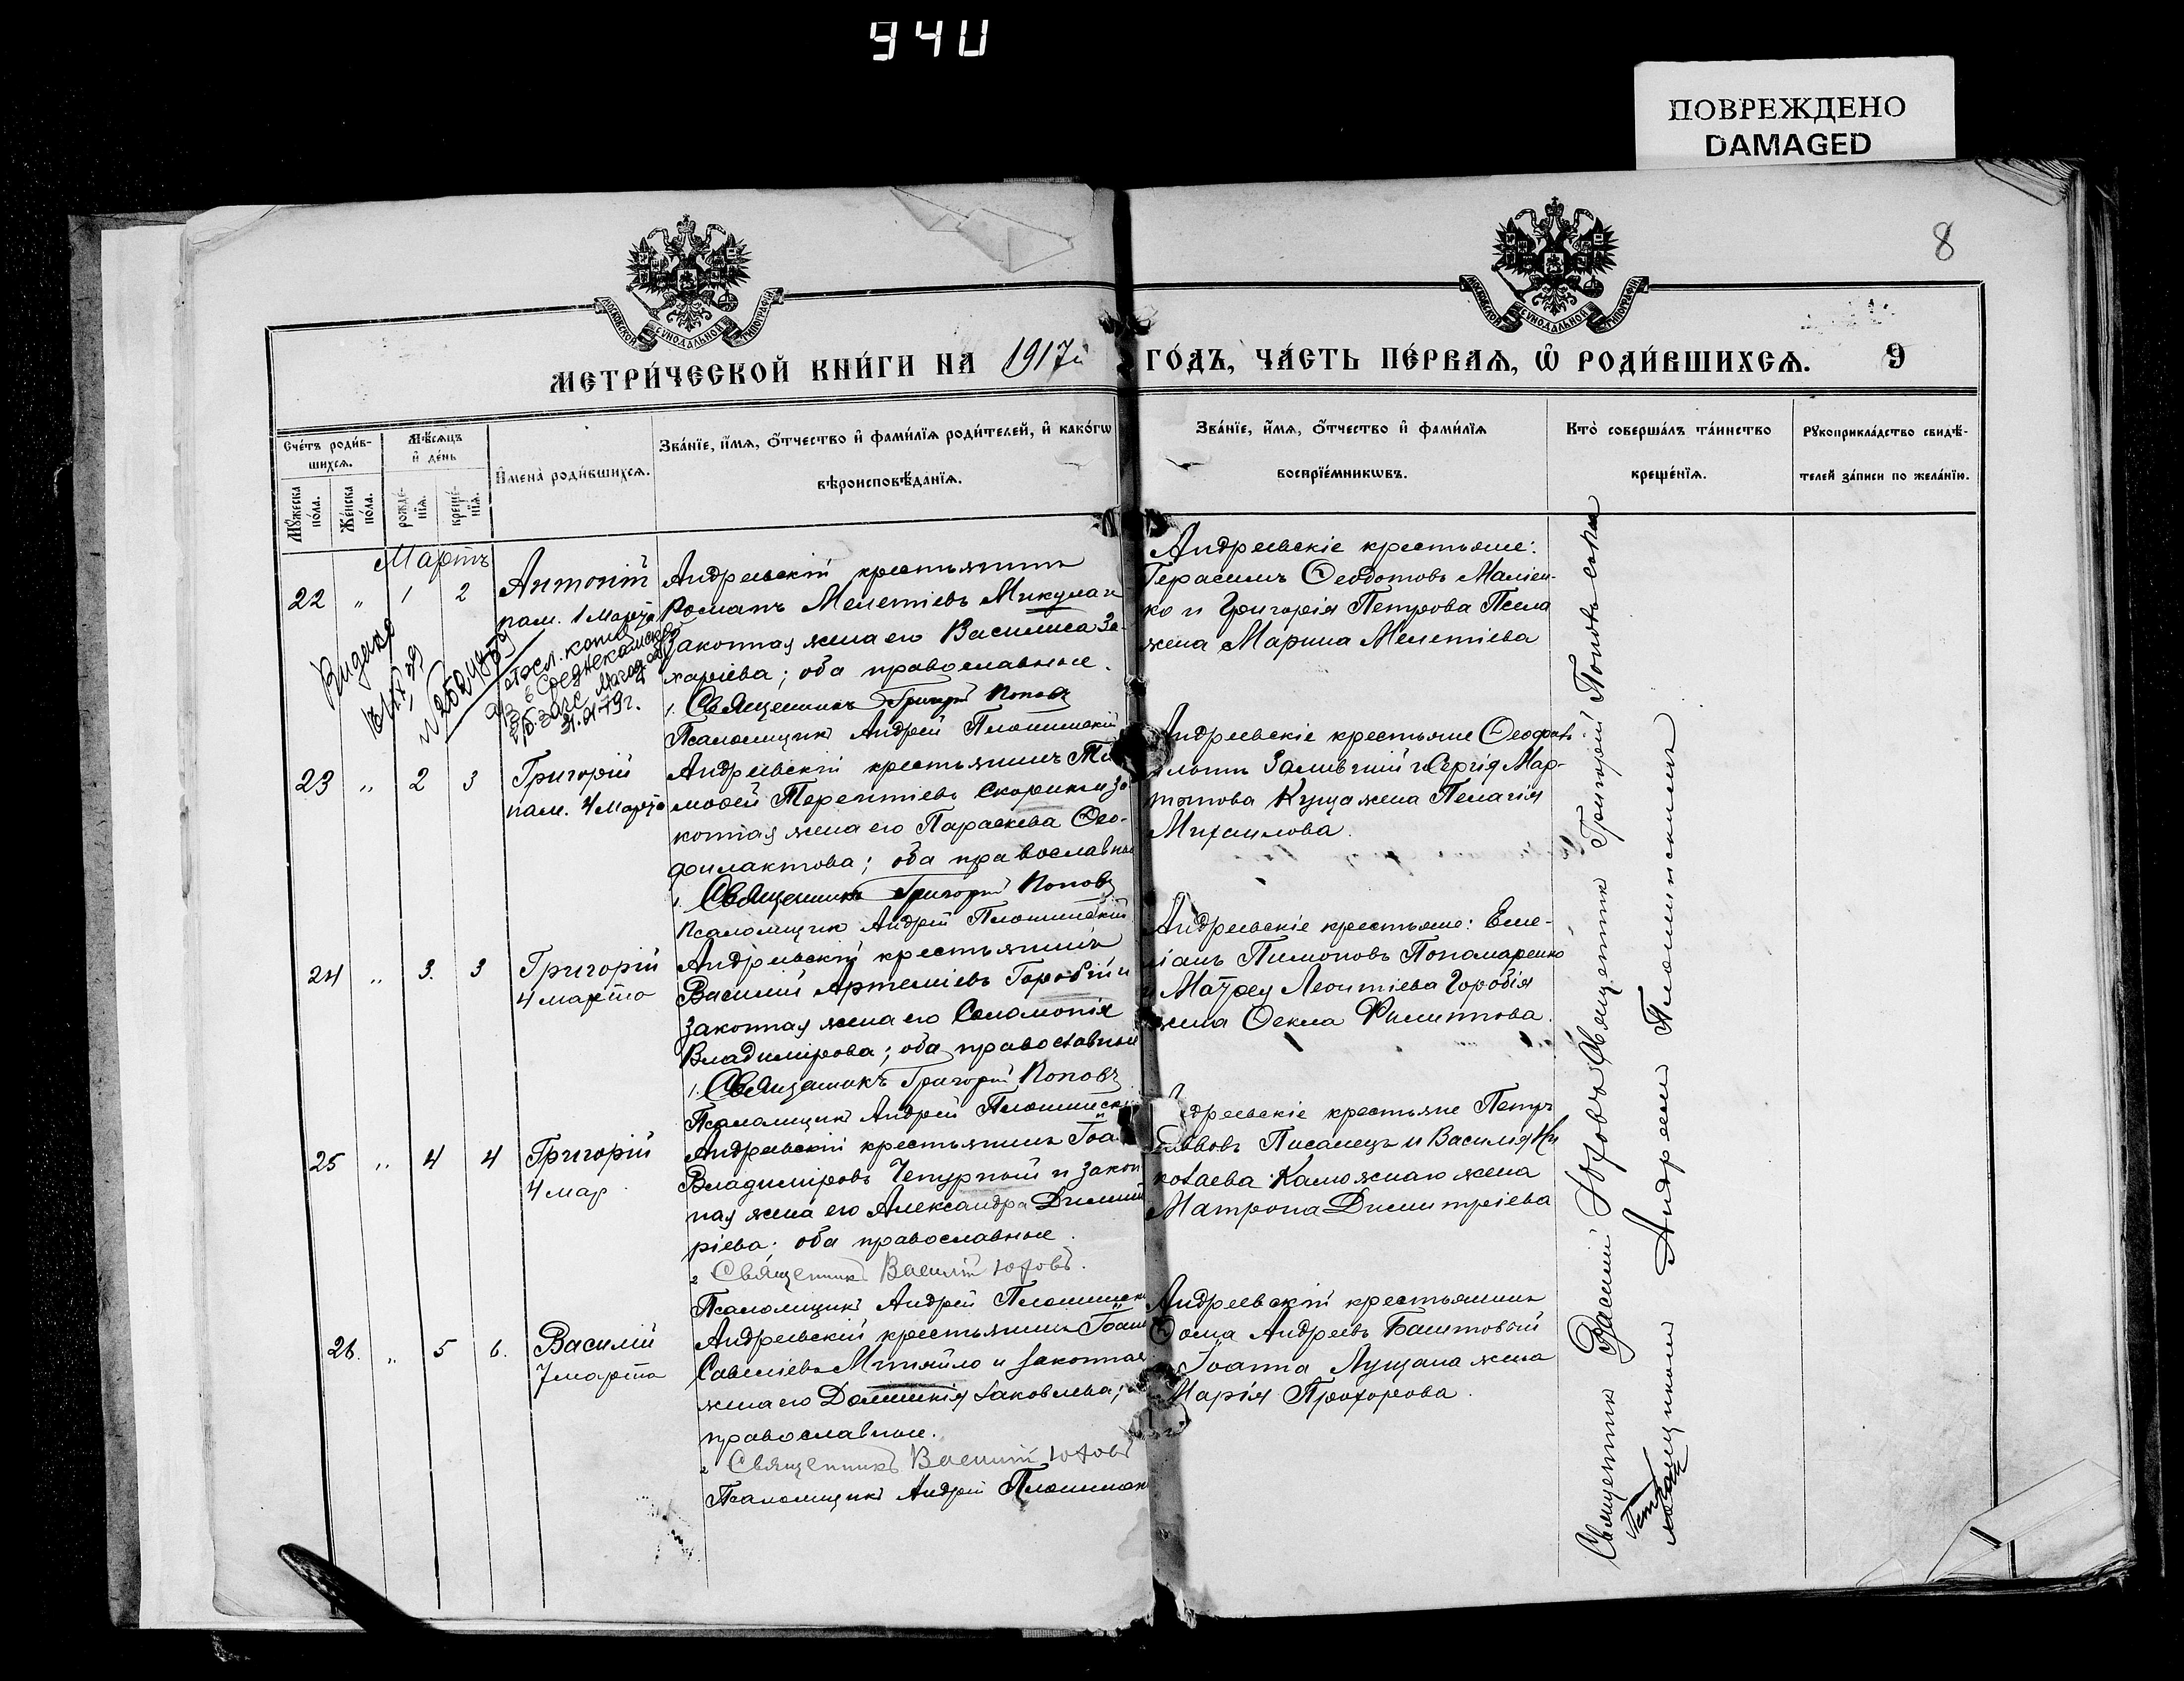 940
ПОВРЕЖДЕНО
DAMAGED
8
МОСКОВСКОЙ СѴНОДАЛЬНОЙ ТИПОГРАФІИ
МОСКОВСКОЙ СѴНОДАЛЬНОЙ ТИПОГРАФІИ
МЕТРИ́ЧЕСКОЙ КНИ́ГИ НА 1917й ГО́ДЪ, ЧА́СТЬ ПЕ́РВАѦ, Ѽ РОДИ́ВШИХСѦ. 9
Сче́тъ роди́в-
шихсѧ.
Мꙋ́жеска по́ла.
Же́нска по́ла.
Мѣ́сѧцъ и҆ де́нь
рожде́-
нїѧ.
креще́-
нїѧ.
И҆мена̀ роди́вшихсѧ.
Зва́нїе, и҆́мѧ, ѻ҆́тчество и҆ фами́лїѧ роди́телей, и҆ како́гѡ
вѣроисповѣ́данїѧ.
Зва́нїе, и҆́мѧ, ѻ҆́тчество и҆ фами́лїѧ
воспрїе́мникѡвъ.
Кто̀ соверша́лъ та́инство
креще́нїѧ.
Рꙋкоприкла́дство свидѣ́-
телей за́писи по жела́нїю.
Мартъ
22 " 1 2
Антоній
пам. 1 Марта
Андреевскій крестьянинъ
Романъ Мелетіевъ Микула и
законная жена его Василиса За-
харіева; оба православные.
1. Священникъ Григорій Поповъ
Псаломщикъ Андрей Плошинскій
Андреевскіе крестьяне:
Герасимъ Ѳеодотовъ Маліен-
ко и Григорія Петрова Псела
жена Марина Мелетіева
Видано
31.01-79г.
23 " 2 3
Григорій
пам. 4 Марта
Андреевскій крестьянинъ Ти
моѳей Терентіевъ Скорикъ и за
конная жена его Параскева Ѳео-
филактова; оба православные
1. Священникъ Григорій Поповъ
Псаломщикъ Андрей Плошинскій
Андреевскіе крестьяне
и Сергія Мар-
тынова Куща жена Пелагія
Михаилова.
24 " 3. 3
Григорій
4 марта
Андреевскій крестьянинъ
Василій Артеміевъ Горобій и
законная жена его Соломонія
Владимірова; оба православные
1. Священникъ Григорій Поповъ
Псаломщикъ Андрей Плошинскій
Андреевскіе крестьяне: Еме-
ліанъ Пимоновъ Пономаренко
и Матѳея Леонтіева Горобія
жена Ѳекла Филиппова.
25 " 4 4
Григорій
4 мар
Андреевскій крестьянинъ Іоа
Владиміровъ Чепурный и закон
ная жена его Александра Димит
ріева; оба православные.
2 Священникъ Василій Юховъ.
Псаломщикъ Андрей Плошинск
дреевскіе крестьяне Петръ
Писанецъ и Василія Ни
колаева Каможнаго жена
Матрона Димитріева
26. " 5 6.
Василій
7 марта
Андреевскій крестьянинъ Іоан
Савеліевъ Митяйло и законная
жена его Домникія Іаковлева;
православные.
2 Священникъ Василій Юховъ
Псаломщикъ Андрей Плошинск
Андреевскій крестьянинъ
Ѳома Андреевъ Баштовый
Іоанна Лущана жена
Марія Прохорова.
Священник Василій Юховъ Священник Григорій Поповъ
псаломщиком Андреем Плошинскимъ